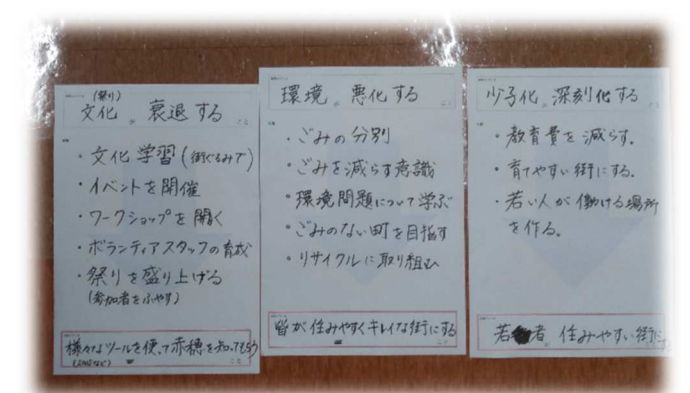 (祭り)
文化 が 衰退する
・文化学習(街ぐるみで)
・イベントを開催
・ワークショップを開く
・ボランティアスタッフの育成
・祭りを盛り上げる
(参加者をふやす)
様々なツールを使って赤穂を知ってもらう
環境 が 悪化する
・ごみの分別
・ごみを減らす意識
・環境問題について学ぶ
・ごみのない町を目指す
・リサイクルに取り組む
皆が住みやすくキレイな街にする
少子化 が 深刻化する
・教育費を減らす。
・育てやすい街にする。
・若い人が働ける場所
を作る。
若者 住みやすい街に